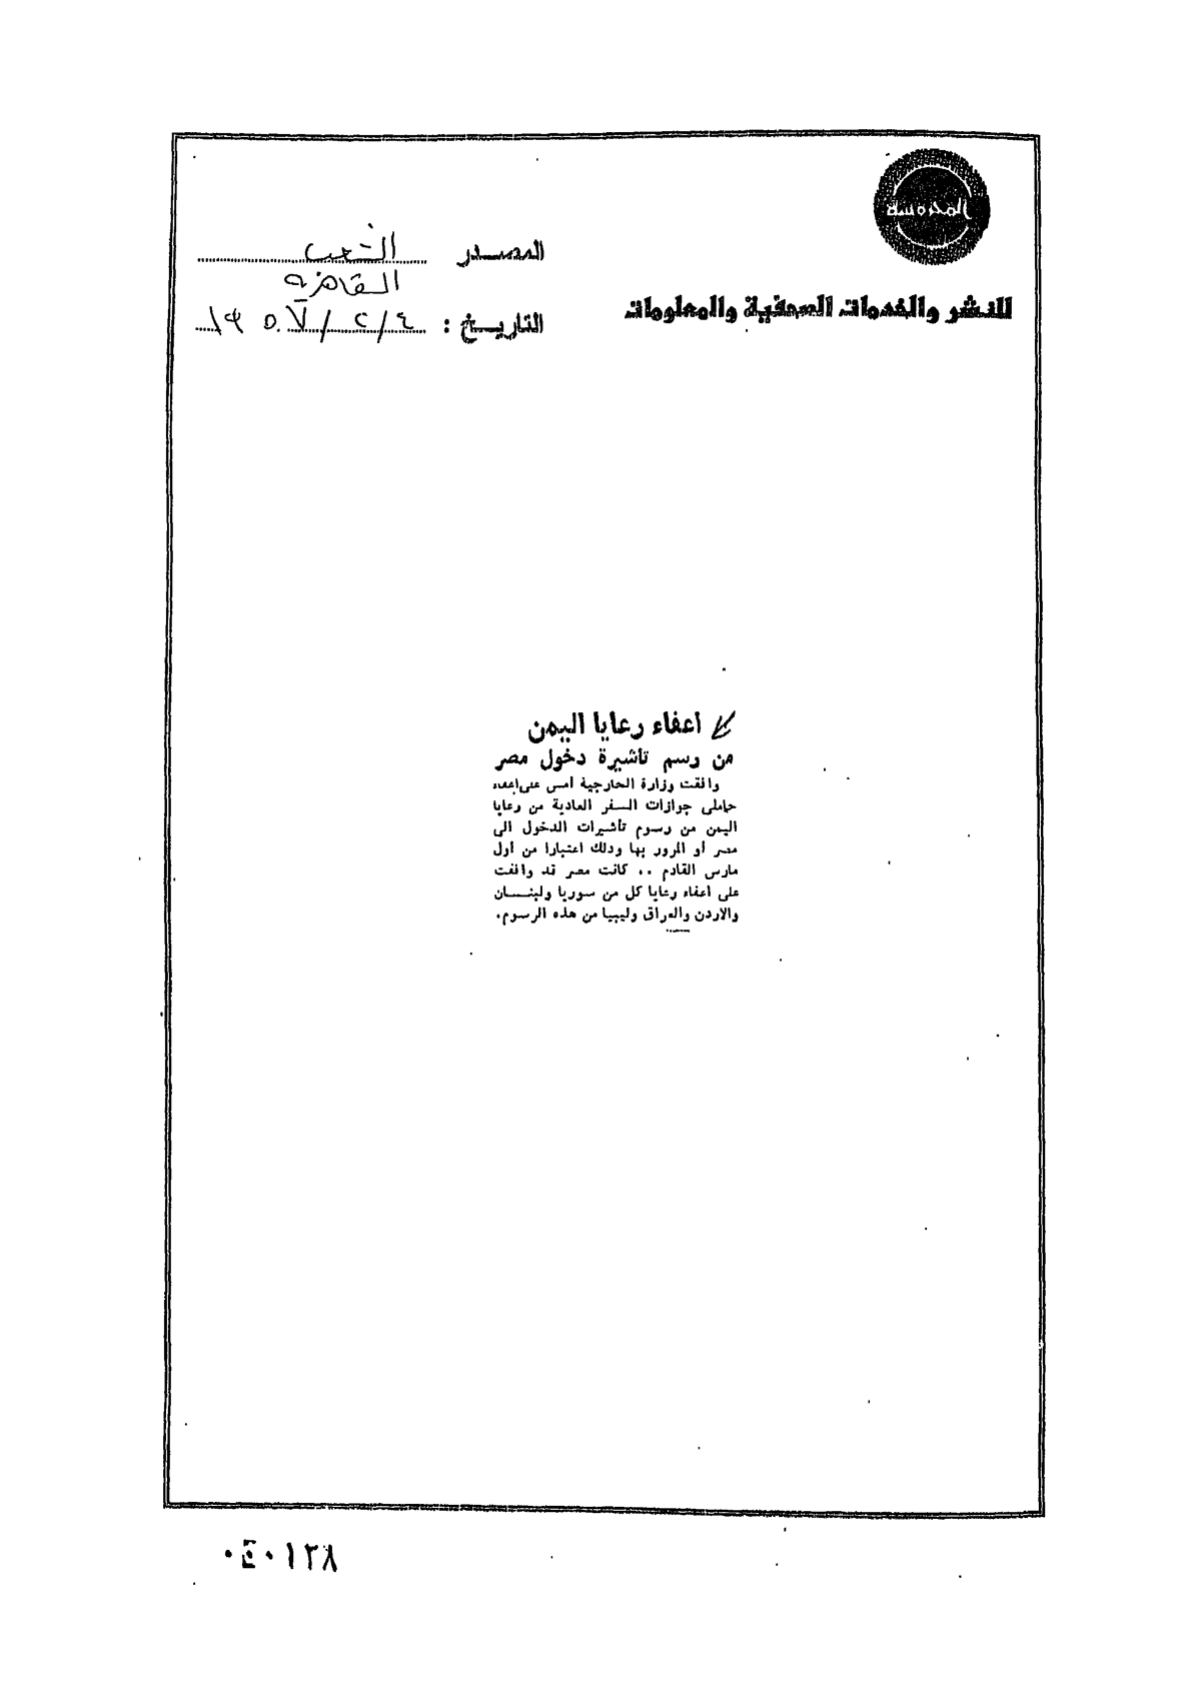 المحروسة
للنشر والخدمات الصحفية والمعلومات
المصدر الشعب
القاهرة
التاريخ : ٤/٢/١٩٥٧
أعفاء رعايا اليمن
من رسم تأشيرة دخول مصر
وافقت وزارة الخارجية أمس على اعفاء
حاملى جوازات السفر العادية من رعايا
اليمن من رسوم تأشيرات الدخول الى
مصر أو المرور بها وذلك اعتبارا من أول
مارس القادم .. كانت مصر قد وافقت
على اعفاء رعايا كل من سوريا ولبنــان
والاردن والعراق وليبيا من هذه الرسوم.
٠٤٠١٢٨